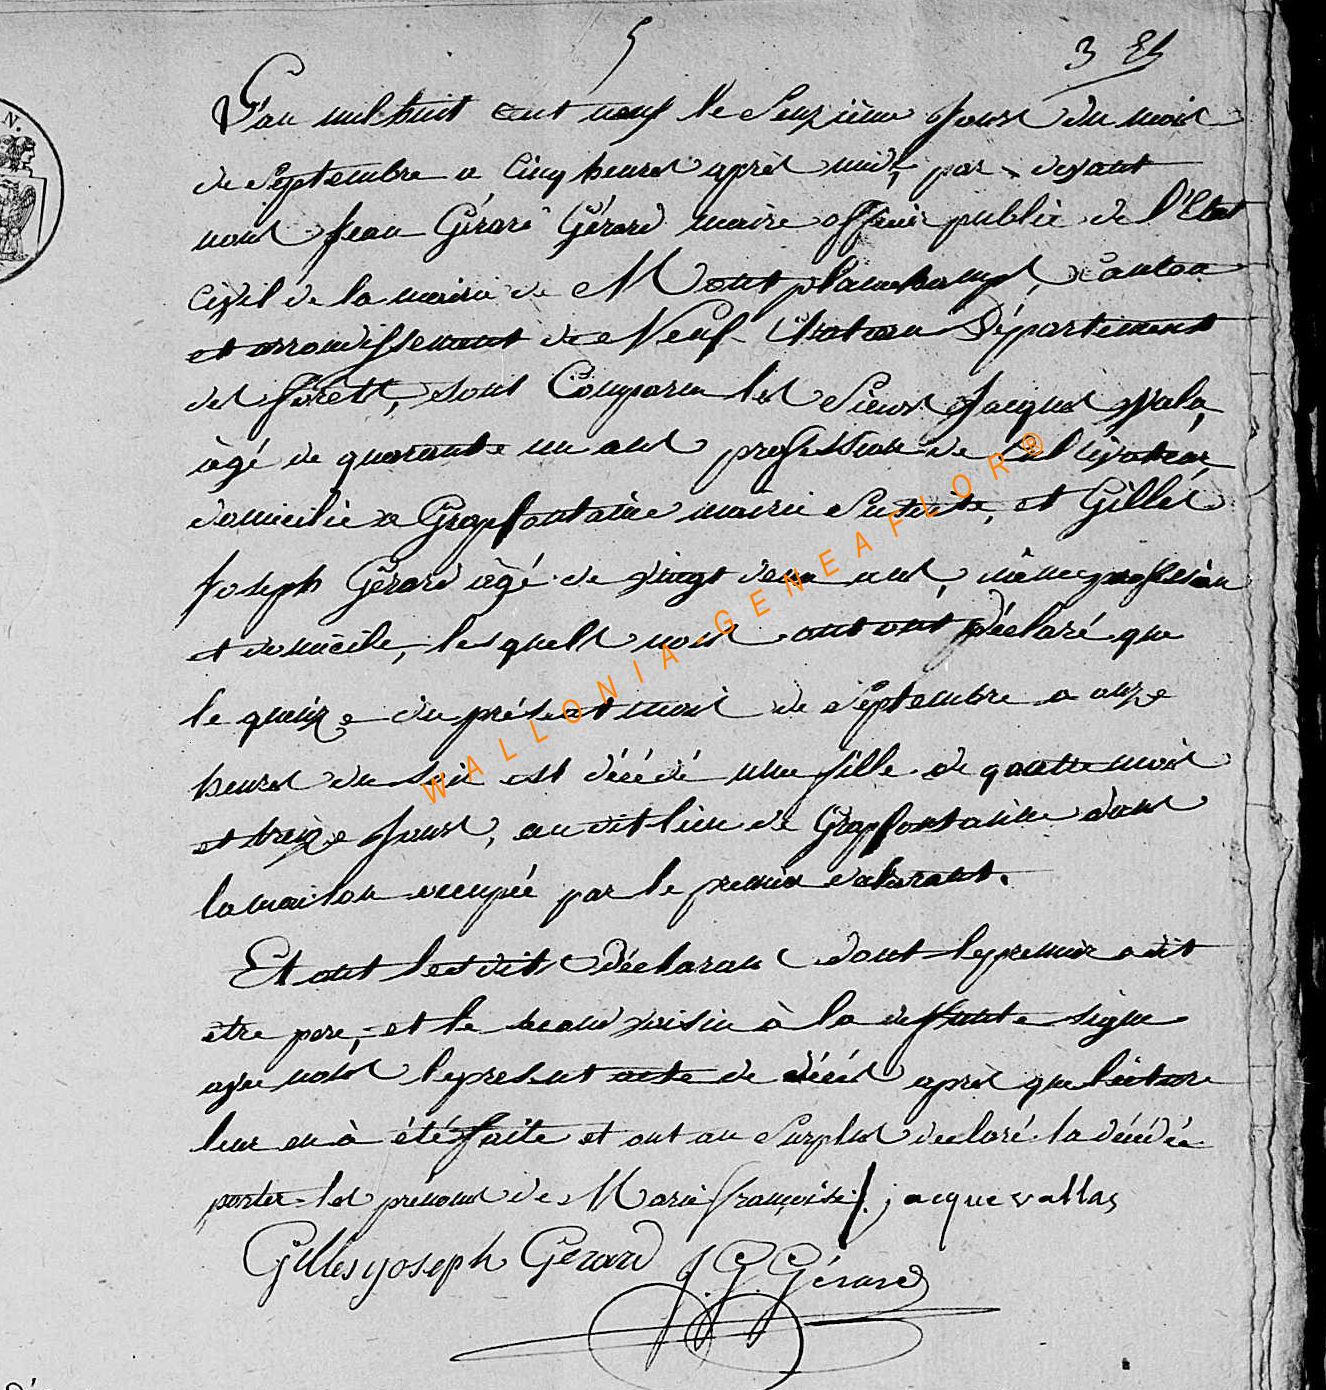 5
3
N.
L'an mil huit cent neuf le Seizième Jours du mois
de Septembre a Cinq heures après midi, par-devant
nous Jean Gérard Gérard maire officier public de l'Etat
Civil de la mairie de Montplainchamps, Canton
et arrondissement de Neuf-Chateau Département
des forêts, sont Comparu les Sieurs Jacques Vala,
âgé de quarante un ans profession de Cultivateur,
domicilié a Grapfontaine mairie Susdite, et Gilles
Joseph Gérard âgé de vingt deux ans, même profession
et domicile, lesquels nous ont Déclaré que
le quinze du présent mois de Septembre a onze
heures du soir est décédé une fille de quatre mois
et treize Jours, au dit lieu de Grapfontaine dans
la maison occupée par le premier declarant.
Et ont lesdits Déclarans dont le premier a dit
etre pere, et le second voisin à la deffunte signé
avec nous le present acte de décès après que lecture
leur en à été faite et ont au Surplus declaré la décédée
porter les prénoms de Marie françoise /. jacque vallas
Gilles joseph Gerard J. G. Gérard
WALLONIA-GENEAFLOR®